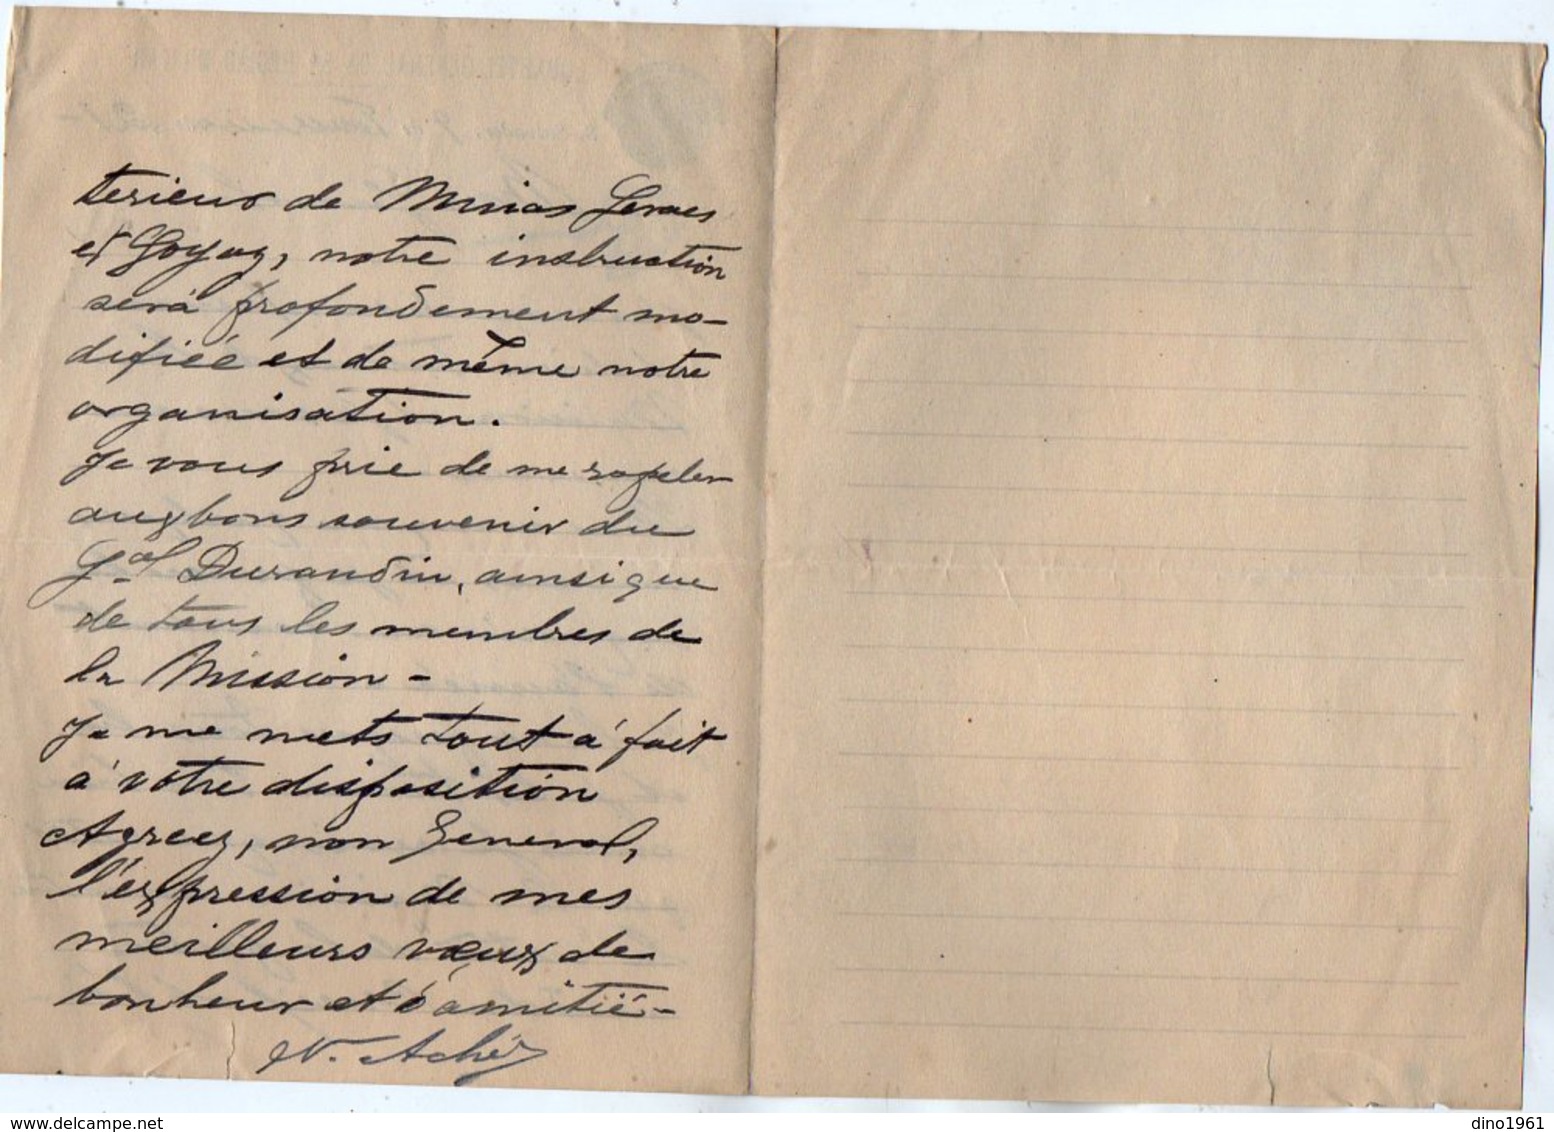 terieur de Minas Geraes
et Goyaz, notre instruction
será profondement mo-
difiée et de même notre
organisation.
Je vous prie de me rapeler
aux bons souvenir du
Gal Durandin, ainsi que
de tous les membres de
la Mission -
Je me mets tout á fait
á votre disposition
Agreez, mon General,
l'expression de mes
meilleurs vœux de
bonheur et d'amitié -
N. Aché
delcampe.net
dino1961